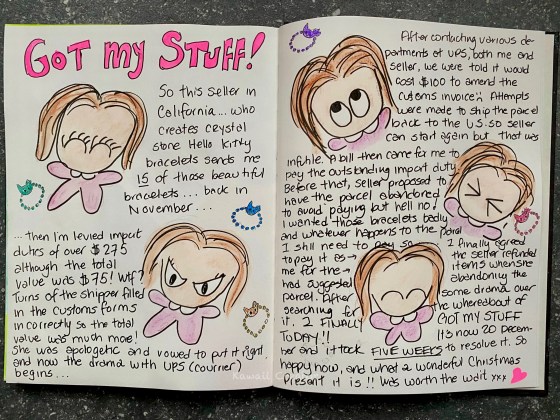 GOT MY STUFF!
So this seller in
California... who
creates crystal
stone Hello Kitty
bracelets sends me
15 of those beautiful
bracelets... back in
November...
...then I'm levied impot
duties of over $275
although the total
value was $75! Wtf?
Turns of the shipper filled
in the customs forms
incorrectly so the total
value was much moe!
She was apologetic and vowed to put it right
and now the drama with UPS (courrier)
begins...
After contacting various de-
partments at UPS, both me and
seller, we were told it would
cost $100 to amend the
customs invoice Attempts
were made to ship the parcel
back to the US. so seller
can start again but that was
infutile. A bill then came for me to
pay the outstanding impart duty.
Before that, seller proposed to
have the parcel abandoned
to avoid paying but hell no!
I wanted those bracelets badly
and whatever happens to the
I still need to pay so
I finally agreed
to pay it as →
the seller refunded
me for the →
items when she
had suggested
abandoning the
parcel. After
some drama over
searching for
the whereabout of
it. I FINALLY
GOT MY STUFF
TODAY!!
It's now 20 Decem-
ber and it took FIVE WEEKS to resolve it. So
happy now, and what a wonderful Christmas
present it is!! Was worth the wait xxx